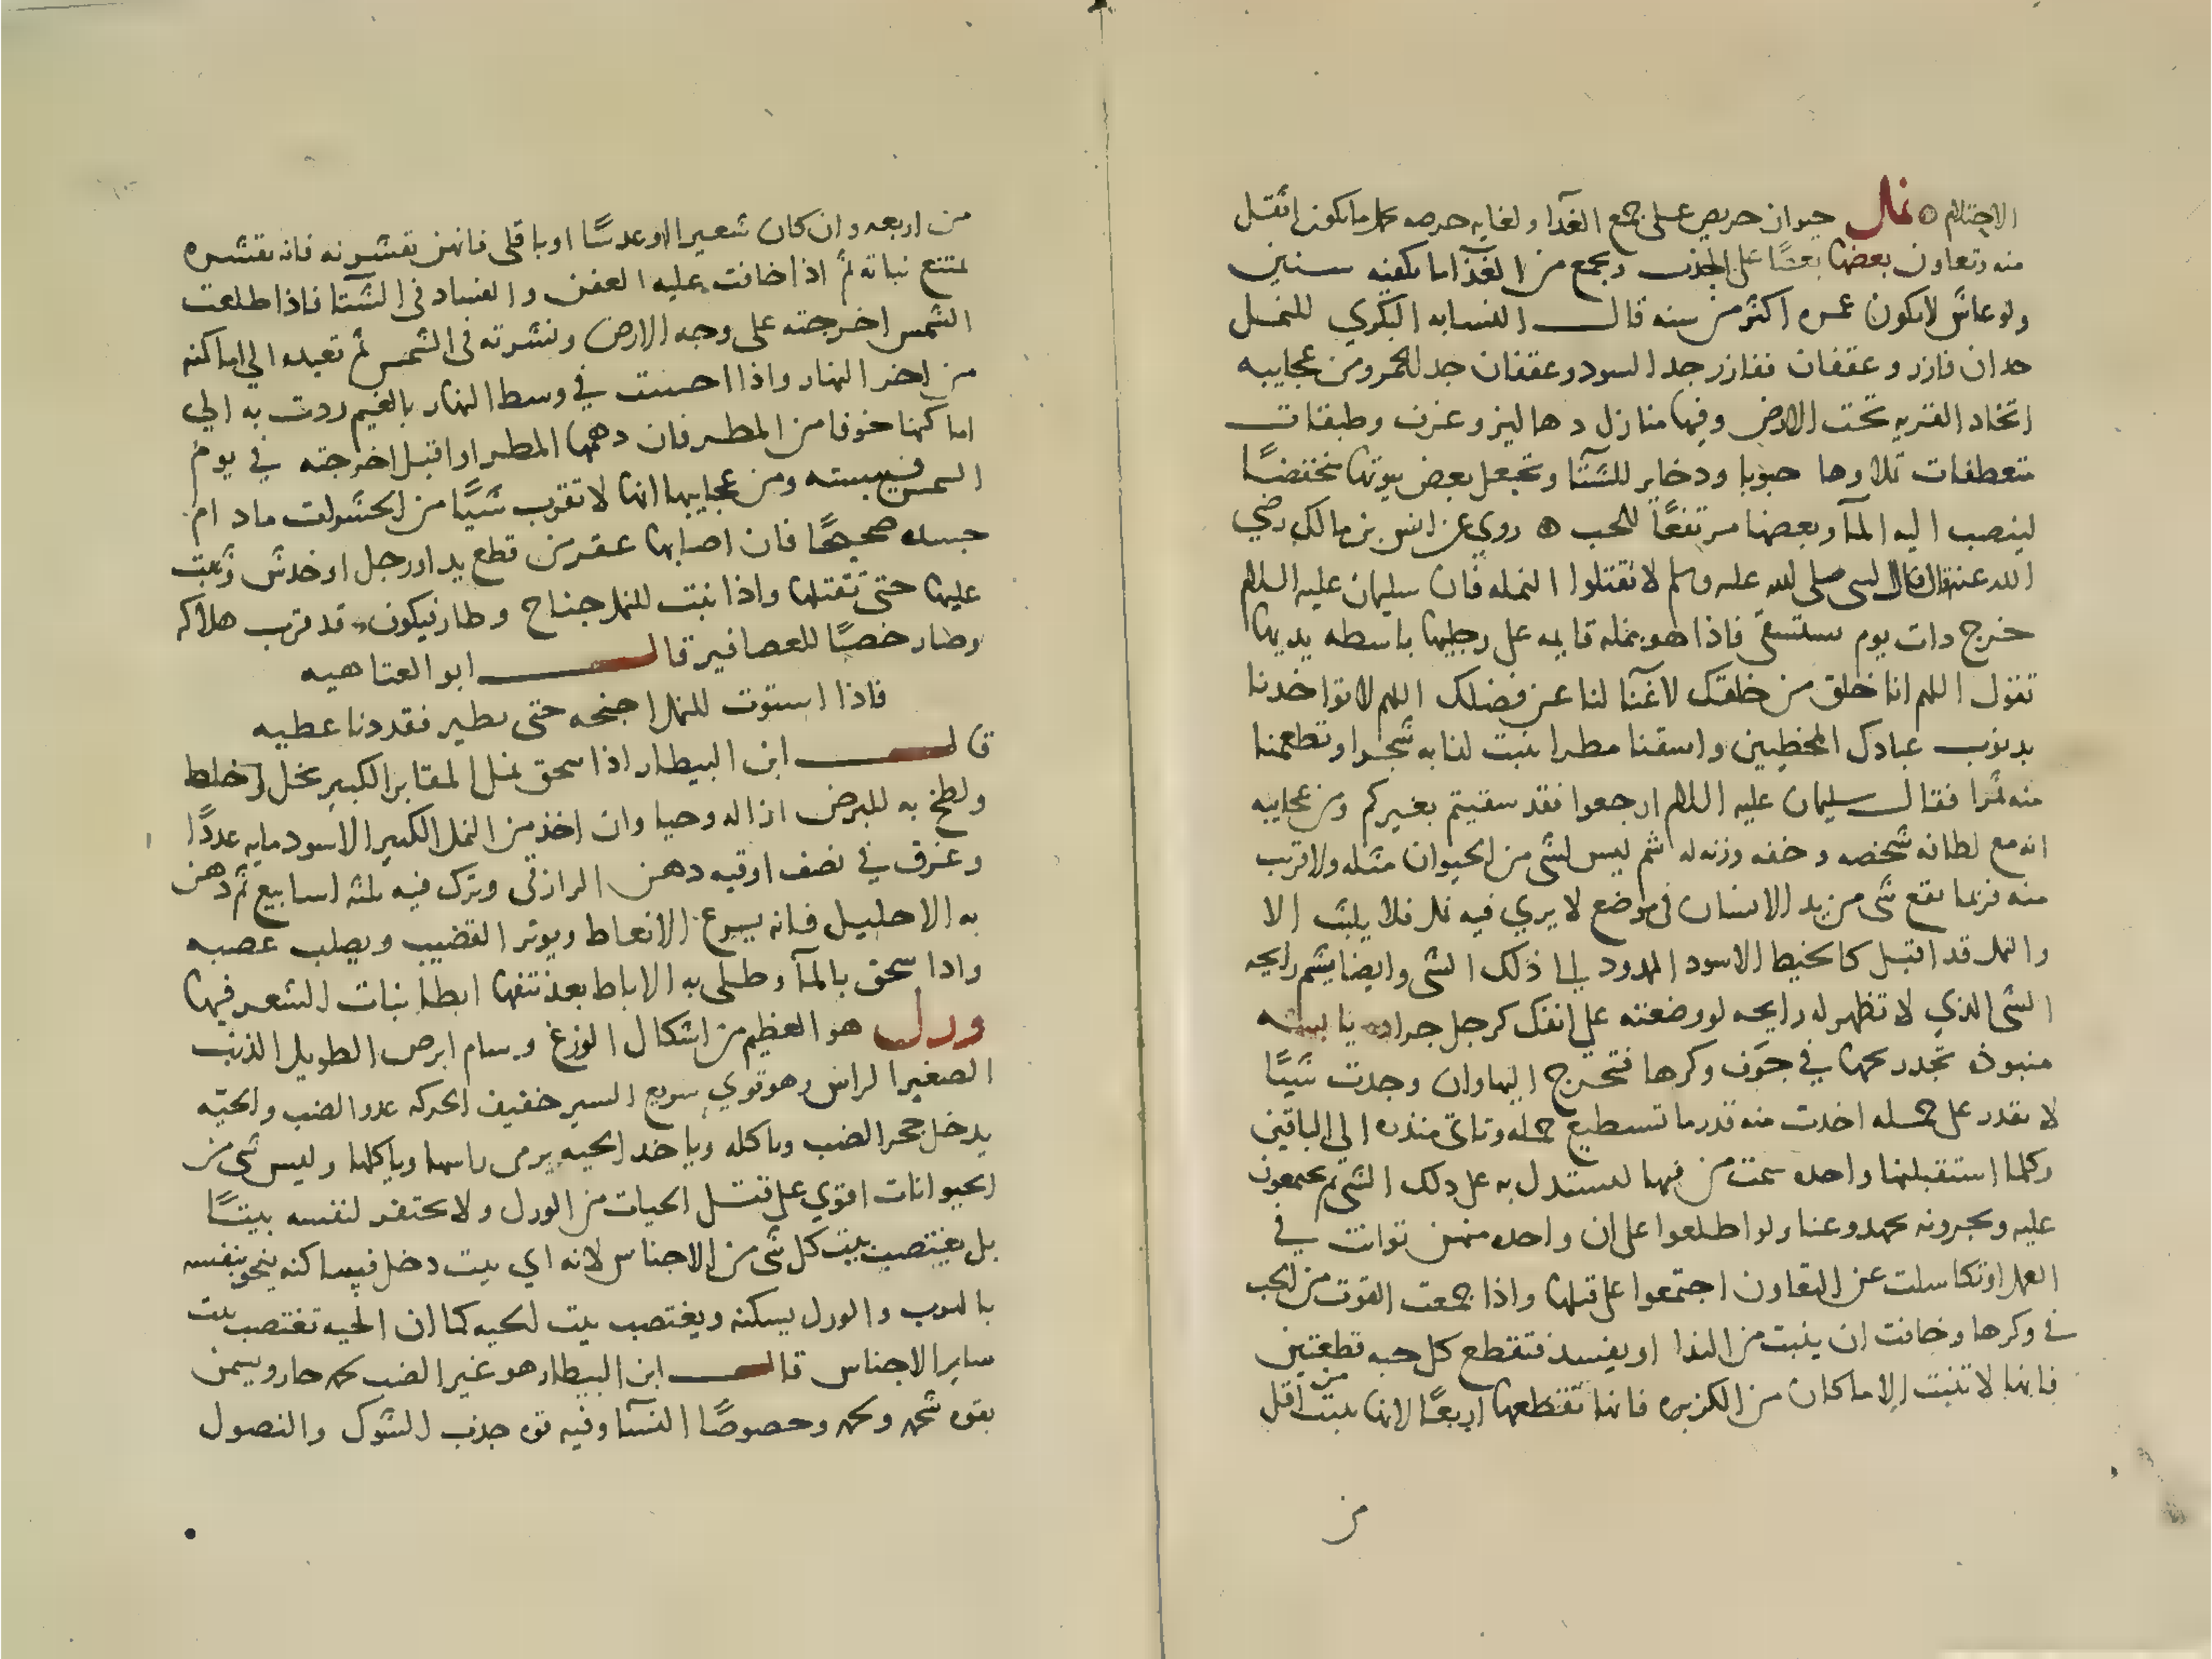 الاحتلام ۞ نمل حيوان حريص على جمع الغذا ولغايه حرصه يحمل ما يكون اثقل
منه وتعاون بعضها بعضًا على الجذب ويجمع من الغذا ما يكفيه سنين
ولو عاش لا يكون عمره اكثر من سنه قال النسابه البكري للنمل
جدان فازر وعقفان ففازر جد السود وعقفان جد الحمر ومن عجايبه
اتخاد القريه تحت الارض وفيها منازل دهاليز وغرف وطبقات
متعطفات تملاوها حبوبا ودخاير للشتا وتجعل بعض بيوتها منخفضًا
لينصب اليه الما وبعضها مرتفعًا للحب ۞ روي عن انس بن مالك رضي
الله عنه قال قال النبي صلى الله عليه وسلم لا تقتلوا النمله فان سليمان عليه السلام
خرج دات يوم يستسقي فاذا هو بنمله قايمه على رجليها باسطه يديها
تقول اللهم انا خلق من خلقك لا غنا لنا عن فضلك اللهم لا تواخدنا
بدنوب عبادك المخطيين واسقنا مطرا ينبت لنا به شجرا وتطعمنا
منه ثمرا فقال سليمان عليه السلام ارجعوا فقد سقيتم بغيركم ومن عجايبه
انه مع لطافه شخصه وخفه وزنه له شم ليس لشي من الحيوان مثله ولا قريب
منه فربما يقع شي من يد الانسان في موضع لا يري فيه نمل فلا يلبث الا
والنمل قد اقبل كالخيط الاسود الممدود الى ذلك الشي وايضا يشم رايحه
الشي الذي لا تظهر له رايحه لو وضعته على انفك كرجل جراده يابسه
منبوذه تجد ريحها في جوف وكرها فتخرج اليها وان وجدت شيًا
لا تقدر على حمله اخدت منه قدر ما تستطيع حمله وتاتي منذره الي الباقين
وكلما استقبلتها واحده سمت من فيها لتستدل به على دلك الشي ثم يجتمعون
عليه ويجرونه بجهد وعنا ولو اطلعوا على ان واحده منهن توانت في
العمل او تكاسلت عن التعاون اجتمعوا على قتلها واذا جمعت القوت من الحب
في وكرها وخافت ان ينبت من الندا او يفسد فتقطع كل حبه قطعتين
فانها لا تنبت الا ما كان من الكزبره فانها تقطعها اربعًا لانها ينبت من اقل
من
من اربعه وان كان شعيرا او عدسًا او باقلى فانهن تقشرنه فانه بقشره
يمتنع نباته ثم اذا خافت عليه العفن والفساد في الشتا فاذا طلعت
الشمس اخرجته على وجه الارض ونشرته في الشمس ثم تعيده الي اماكنه
من اخر النهار واذا احست في وسط النهار بالغيم ردت به الي
اماكنها خوفا من المطر فان دهمها المطر او اقبل اخرجته في يوم
الشمس فييبسته ومن عجايبها انها لا تقرب شيًا من الحشرات ما دام
جسده صحيحًا فان اصابها عقر من قطع يد او رجل او خدش وثبت
عليها حتى تقتلها واذا نبت للنمل جناح وطار فيكون قد قرب هلاكه
وصار خصبًا للعصافير قال ابو العتاهيه
فاذا استوت للنمل اجنحه حتى يطير فقد دنا عطبه
قال ابن البيطار اذا سحق نمل المقابر الكبير بخل وخلط
ولطخ به للبرص ازاله وحيا وان اخذ من النمل الكبير الاسود مايه عددًا
وغرق في نصف اوقيه دهن الرازقي وترك فيه ثلثه اسابيع ثم دهن
به الاحليل فانه يسرع الانعاط ويوتر القضيب ويصلب عصبه
وادا سحق بالما وطلى به الاباط بعد نتفها ابطا نبات الشعر فيها
ورل هو العظيم من اشكال الوزغ وسام ابرص الطويل الذنب
الصغير الراس وهو قوي سريع السير خفيف الحركه عدو الضب والحيه
يدخل جحر الضب وياكله وياخد الحيه يرمي راسها وياكلها وليس شي من
الحيوانات اقوي على قتل الحيات من الورل ولا يحتفر لنفسه بيتًا
بل يغتصب بيت كل شي من الاجناس لانه اي بيت دخل فيه ساكنه ينجو بنفسه
بالهرب والورل يسكنه ويغتصب بيت الحيه كما ان الحيه تغتصب بيت
ساير الاجناس قال ابن البيطار هو غير الضب لحمه حار ويسمن
بقوه شحمه ولحمه وخصوصًا النسا وفيه قوه جذب الشوك والنصول